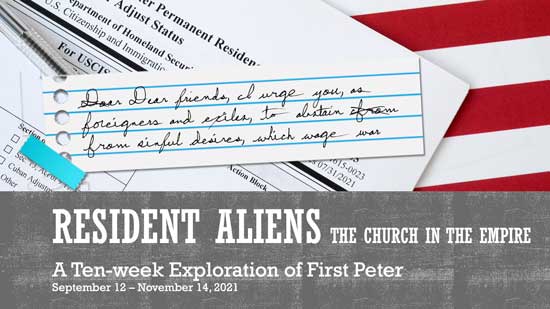 er Permanent Resid
Adjust Status
epartment of Homeland Secur
U.S. Citizenship and Immigration
For USCIS
Dear Dear friends, I urge you, as
foreigners and exiles, to abstain from
from sinful desires, which wage war
Section
Cuban Adjustm
Other
Action Block
615-0023
07/31/2021
RESIDENT ALIENS THE CHURCH IN THE EMPIRE
A Ten-week Exploration of First Peter
September 12 – November 14, 2021